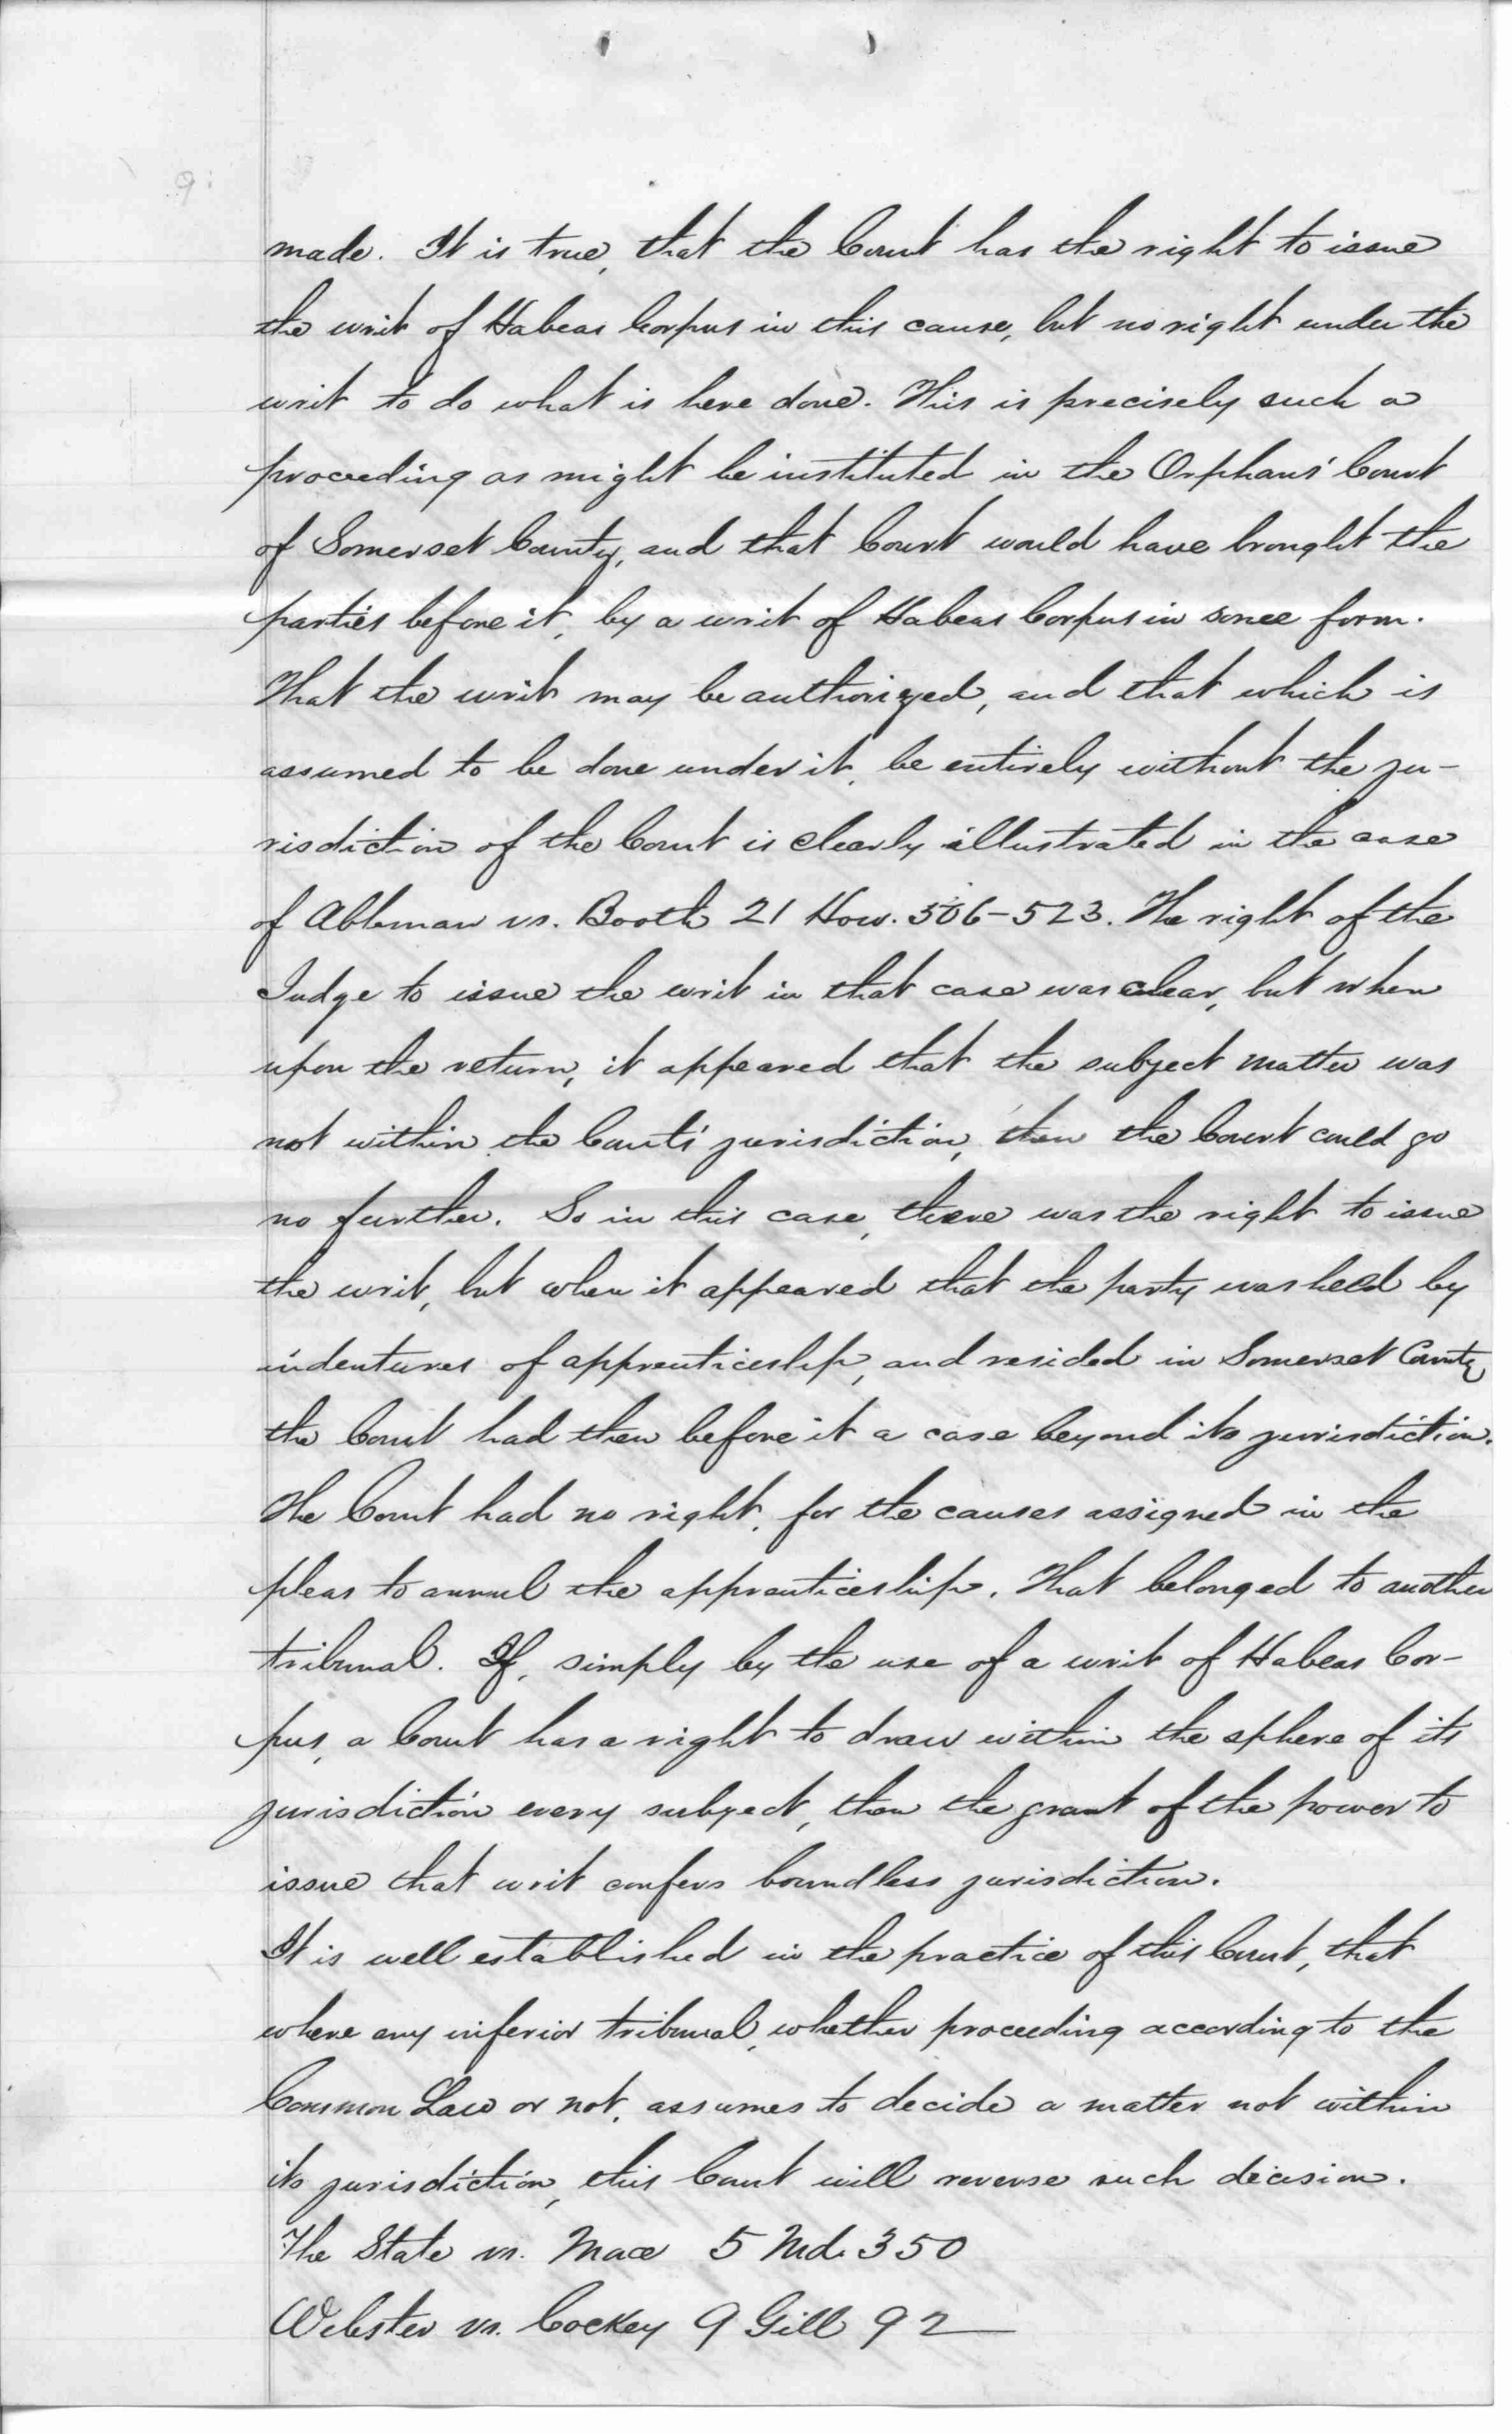 made. It is true, that the Court has the right to issue
the writ of Habeas Corpus in this cause, but no right under the
writ to do what is here done. This is precisely such a
proceeding as might be instituted in the Orphans' Court
of Somerset County, and that Court would have brought the
parties before it, by a writ of Habeas Corpus in some form.
That the writ may be authorized, and that which is
assumed to be done under it, be entirely without the ju-
risdiction of the Court is clearly illustrated in the case
of Ableman vs. Booth 21 How. 506-523. The right of the
Judge to issue the writ in that case was clear, but when
upon the return, it appeared that the subject matter was
not within the Courts' jurisdiction, then the Court could go
no further. So in this case, there was the right to issue
the writ, but when it appeared that the party was held by
indentures of apprenticeship, and resided in Somerset County
the Court had then before it a case beyond its jurisdiction.
The Court had no right, for the causes assigned in the
pleas to annul the apprenticeship. That belonged to another
tribunal. If, simply by the use of a writ of Habeas Cor-
pus, a Court has a right to draw within the sphere of its
jurisdiction every subject, then the grant of the power to
issue that writ confers boundless jurisdiction.
It is well established in the practice of this Court, that
where any inferior tribunal, whether proceeding according to the
Common Law or not, assumes to decide a matter not within
its jurisdiction, this Court will reverse such decision.
The State vs. Mace 5 Md. 350
Webster vs. Cockey 9 Gill 92